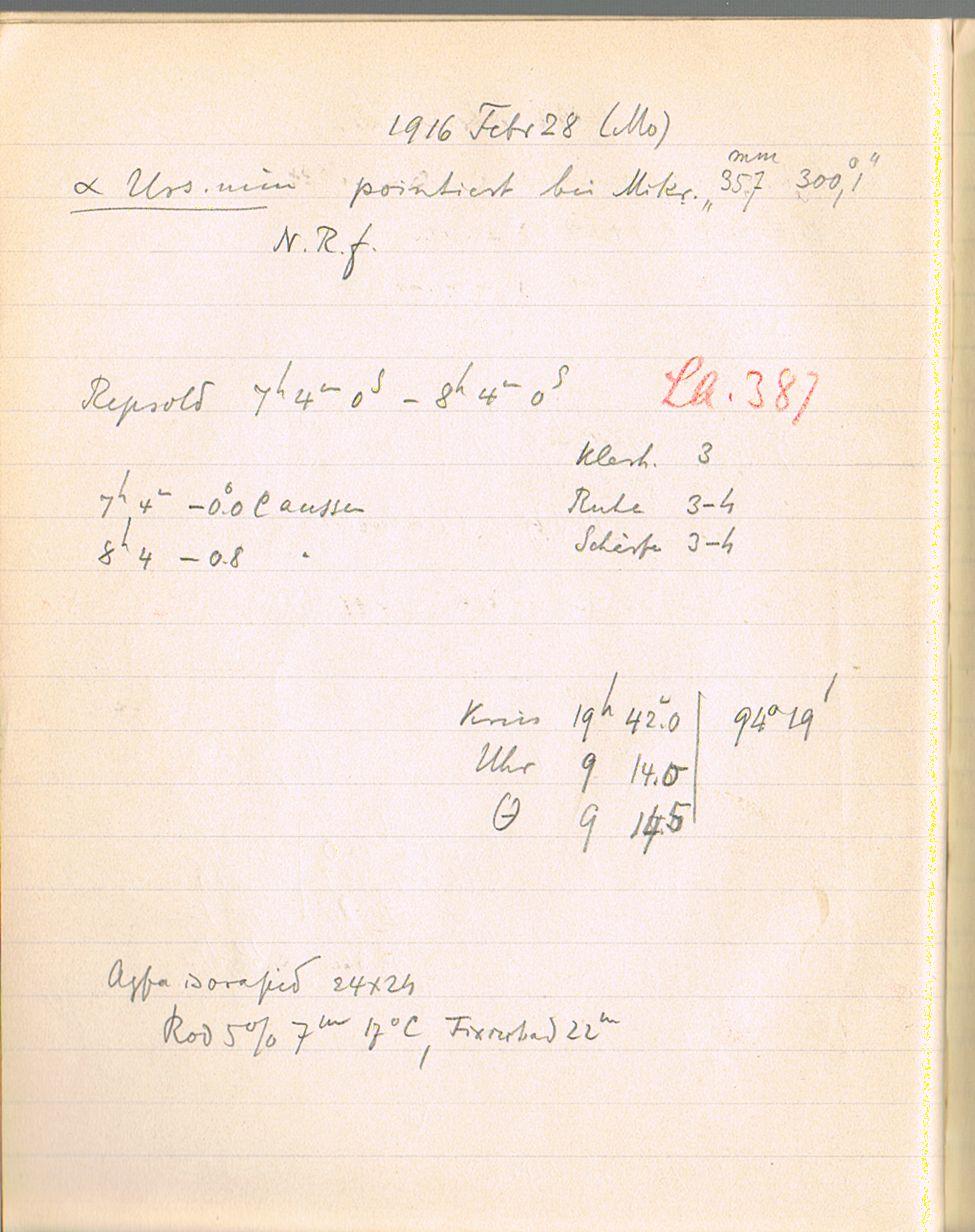 1916 Febr 28 (Mo)
mm
α Urs. min pointiert bei Mikr. 35.7 300,1
N.R.f.
Repsold 7h 4m 0s – 8h 4m 0s La. 387
Klarh. 3
7h 4m –0°.0 C aussen Ruhe 3–4
8h 4 –0.8 " Schärfe 3–4
Kreis 19h 42m.0 94° 19'
Uhr 9 14.5
Θ 9 14.5
Agfa isorapid 24x24
Rod 5% 7m 17°C, Fixierbad 22m